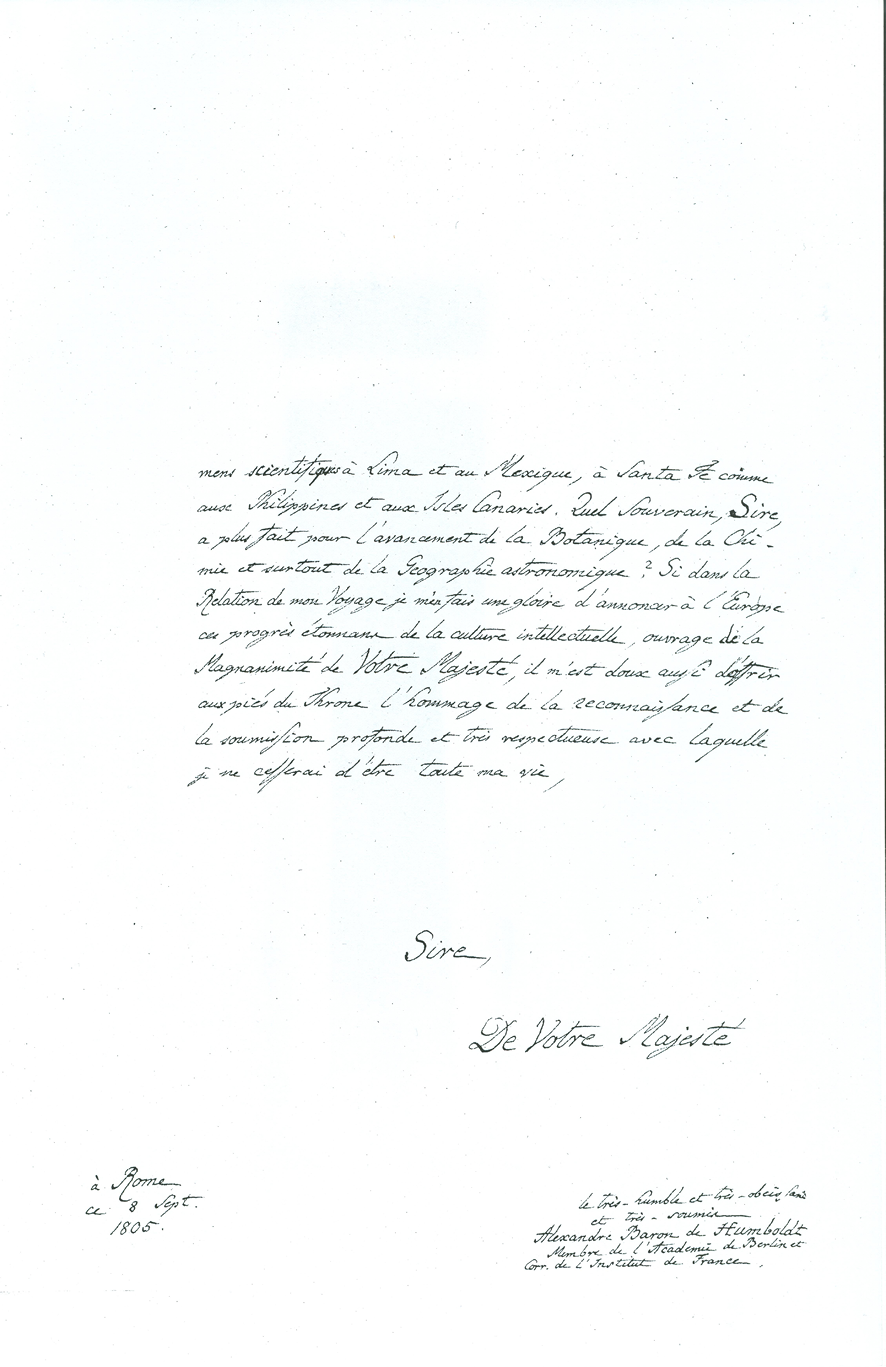 mens scientifiques à Lima et au Mexique, à Santa Fe com̄e
aux Philippines et aux Isles Canaries. Quel Souverain, Sire,
a plus fait pour l'avancement de la Botanique, de la Chi-
mie et surtout de la Geographie astronomique? Si dans la
Relation de mon Voyage je m'en fais une gloire d'annoncer à l'Europe
ces progrès étonnans de la culture intellectuelle, ouvrage de la
Magnanimité de Votre Majesté, il m'est doux aussi d'offrir
aux piés du Throne l'hommage de la reconnaissance et de
la soumission profonde et très respectueuse avec laquelle
je ne cesserai d'être toute ma vie,
Sire,
De Votre Majesté
à Rome
ce 8 Sept.
1805.
le très-humble et très-obéissant
et très-soumis
Alexandre Baron de Humboldt
Membre de l'Academie de Berlin et
Corr. de l'Institut de France.